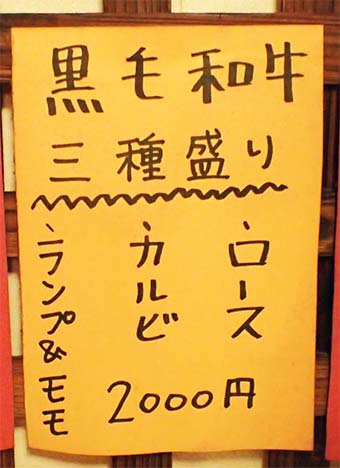 黒毛和牛
三種盛り
・ロース
・カルビ
・ランプ&モモ
2000円